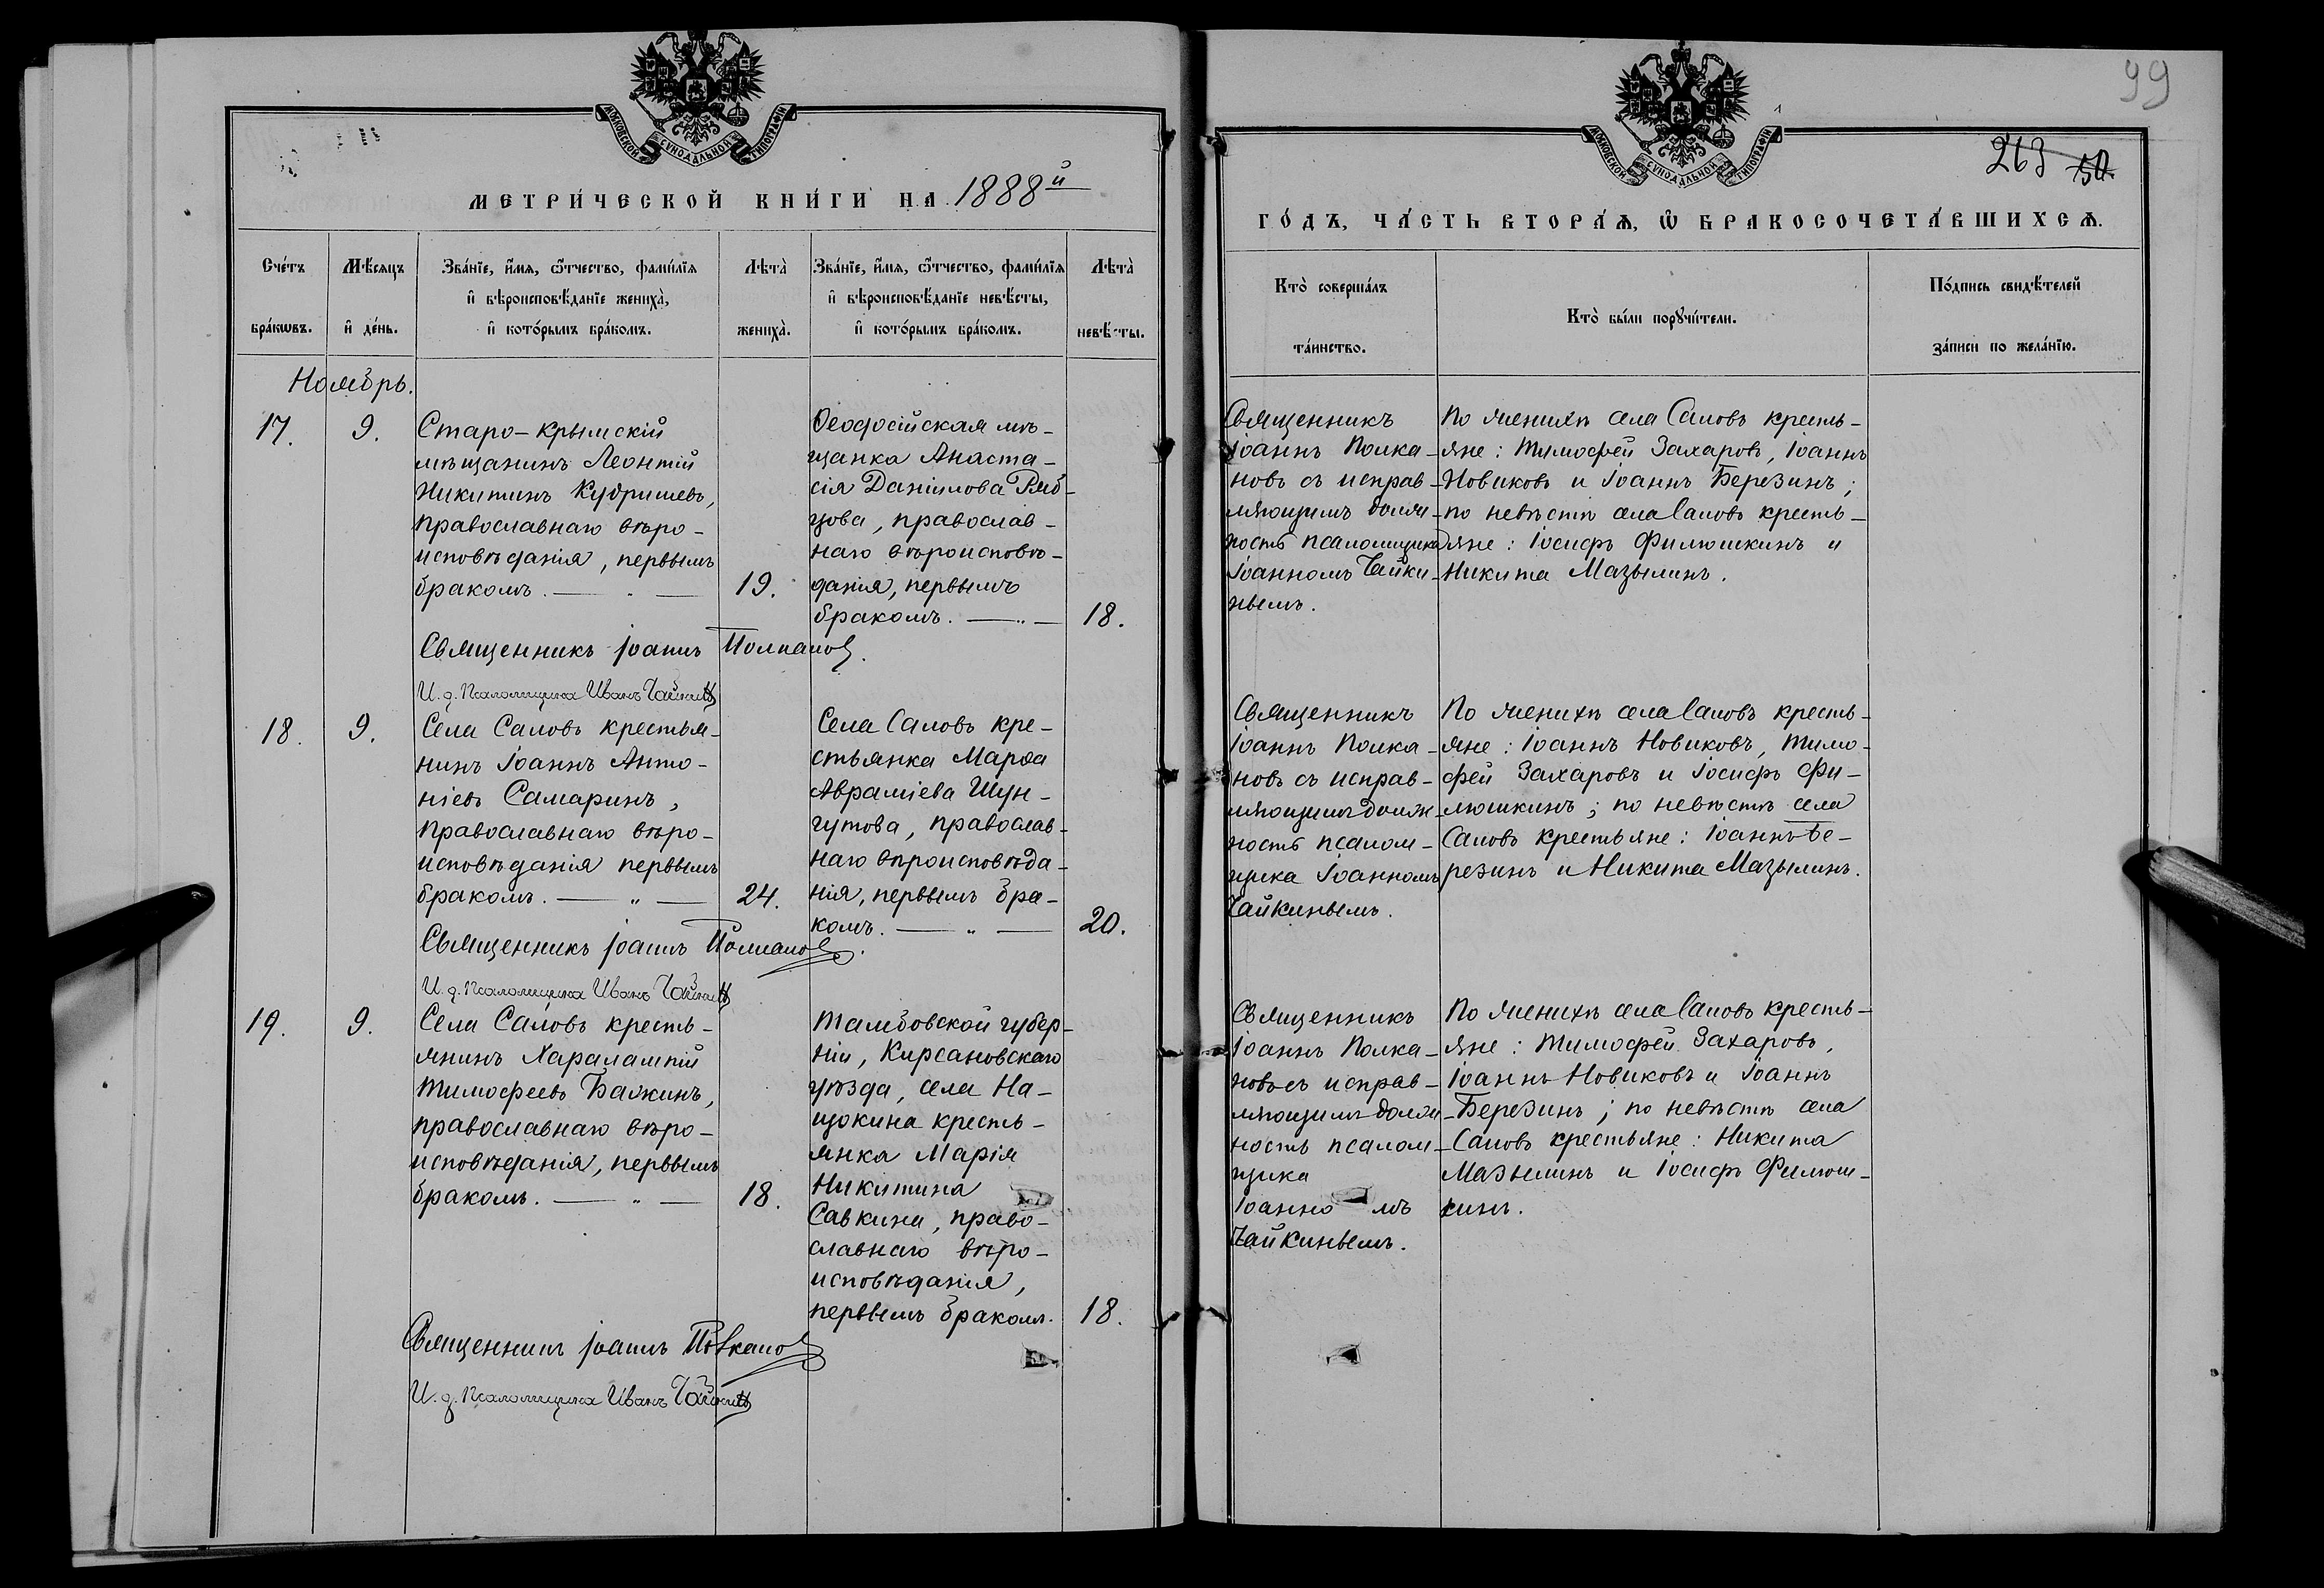 МОСКОВСКОЙ СѴНОДАЛЬНОЙ ТИПОГРАФІИ
МЕТРИ́ЧЕСКОЙ КНИ́ГИ НА 1888й
Сче́тъ бра́кѡвъ.
Мѣ́сяцъ и҆ де́нь.
Зва́нїе, и҆́мѧ, ѻ҆́тчество, фами́лїѧ
и҆ вѣроисповѣ́данїе жениха̀,
и҆ кото́рымъ бра́комъ.
Лѣта̀ жениха̀.
Зва́нїе, и҆́мѧ, ѻ҆́тчество, фами́лїѧ
и҆ вѣроисповѣ́данїе невѣ́сты,
и҆ кото́рымъ бра́комъ.
Лѣта̀ невѣ́сты.
Ноябрь.
17.
9.
Старо-крымскій
мѣщанинъ Леонтій
Никитинъ Кудришевъ,
православнаго вѣро-
исповѣданія, первымъ
бракомъ. — " —
19.
Ѳеодосійская мѣ-
щанка Анаста-
сія Даніилова Ряб-
цова, православ-
наго вѣроисповѣ-
данія, первымъ
бракомъ. — " —
18.
Священникъ Іоаннъ Полкановъ.
И. д. Псаломщика Иванъ Чайкинъ
18.
9.
Села Саловъ крестья-
нинъ Іоаннъ Анто-
ніевъ Самаринъ,
православнаго вѣро-
исповѣданія первымъ
бракомъ. — " —
24.
Села Саловъ кре-
стьянка Марѳа
Авраміева Шун-
гутова, православ-
наго вѣроисповѣда-
нія, первымъ бра-
комъ. — " —
20.
Священникъ Іоаннъ Полкановъ.
И. д. Псаломщика Иванъ Чайкинъ
19.
9.
Села Саловъ кресть-
янинъ Харалампій
Тимофеевъ Бажинъ,
православнаго вѣро-
исповѣданія, первымъ
бракомъ. — " —
18.
Тамбовской губер-
ніи, Кирсановскаго
уѣзда, села На-
щокина кресть-
янка Марія
Никитина
Савкина, право-
славнаго вѣро-
исповѣданія,
первымъ бракомъ.
18.
Священникъ Іоаннъ Полкановъ
И. д. Псаломщика Иванъ Чайкинъ
99
263 50.
МОСКОВСКОЙ СѴНОДАЛЬНОЙ ТИПОГРАФІИ
ГО́ДЪ, ЧА́СТЬ ВТОРА́Ѧ, Ѡ҆ БРАКОСОЧЕТА́ВШИХСѦ.
Кто̀ соверша́лъ
та́инство.
Кто̀ бы́ли порꙋчи́тели.
По́дпись свидѣ́телей
за́писи по жела́нїю.
Священникъ
Іоаннъ Полка-
новъ съ исправ-
ляющимъ долж-
ность псаломщика
Іоанномъ Чайки-
нымъ.
По женихѣ села Саловъ кресть-
яне: Тимофей Захаровъ, Іоаннъ
Новиковъ и Іоаннъ Березинъ;
по невѣстѣ села Саловъ кресть-
яне: Іосифъ Филюшкинъ и
Никита Мазылинъ.
Священникъ
Іоаннъ Полка-
новъ съ исправ-
ляющимъ долж-
ность псалом-
щика Іоанномъ
Чайкинымъ.
По женихѣ села Саловъ кресть-
яне: Іоаннъ Новиковъ, Тимо-
фей Захаровъ и Іосифъ Фи-
люшкинъ; по невѣстѣ села
Саловъ крестьяне: Іоаннъ Бе-
резинъ и Никита Мазылинъ.
Священникъ
Іоаннъ Полка-
новъ съ исправ-
ляющимъ долж-
ность псалом-
щика
Іоанномъ
Чайкинымъ.
По женихѣ села Саловъ кресть-
яне: Тимофей Захаровъ,
Іоаннъ Новиковъ и Іоаннъ
Березинъ; по невѣстѣ села
Саловъ крестьяне: Никита
Мазылинъ и Іосифъ Филюш-
кинъ.